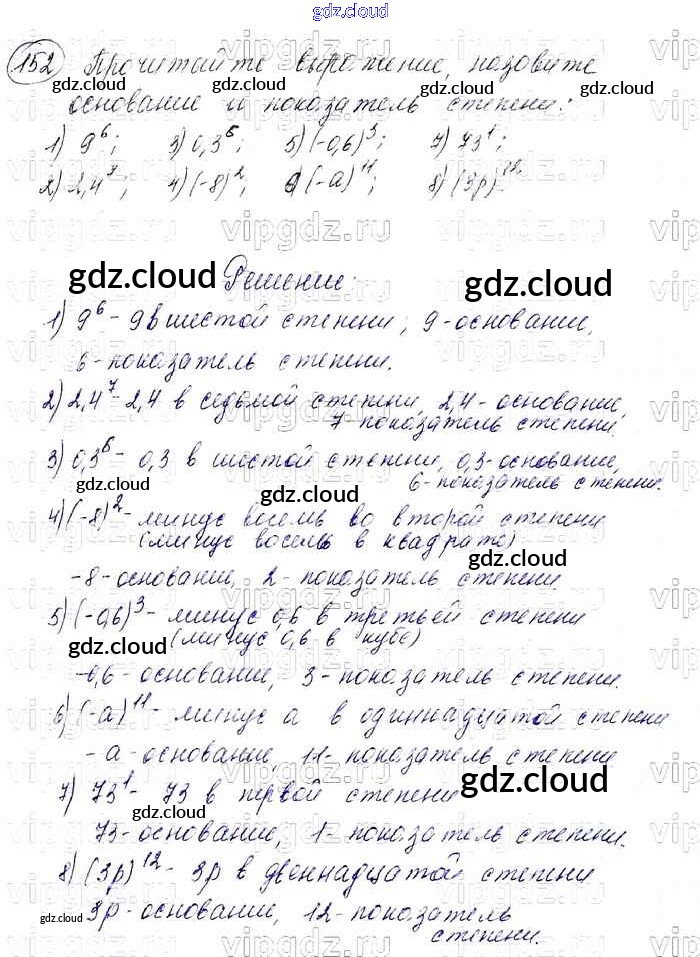 gdz.cloud
152 Прочитайте выражение, назовите
основание и показатель степени:
1) 9⁶; 3) 0,3⁶; 5) (-0,6)³; 7) 73¹;
2) 2,4⁷; 4) (-8)²; 6) (-а)¹¹; 8) (3р)¹²
Решение:
1) 9⁶ - 9 в шестой степени; 9 - основание,
6 - показатель степени.
2) 2,4⁷ - 2,4 в седьмой степени, 2,4 - основание,
7 - показатель степени.
3) 0,3⁶ - 0,3 в шестой степени, 0,3 - основание,
6 - показатель степени.
4) (-8)² - минус восемь во второй степени
(минус восемь в квадрате)
-8 - основание, 2 - показатель степени
5) (-0,6)³ - минус 0,6 в третьей степени
(минус 0,6 в кубе)
-0,6 - основание, 3 - показатель степени.
6) (-а)¹¹ - минус а в одиннадцатой степени
-а - основание, 11 - показатель степени.
7) 73¹ - 73 в первой степени
73 - основание, 1 - показатель степени.
8) (3р)¹² - 3р в двеннадцатой степени
3р - основание, 12 - показатель
степени.